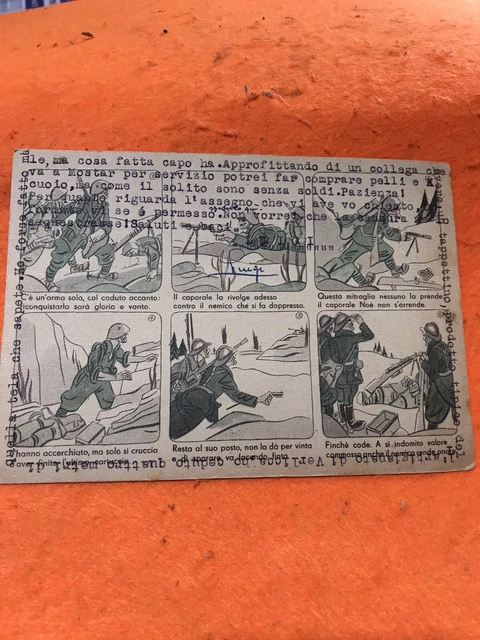 mle, ma cosa fatta capo ha. Approfittando di un collega che
va a Mostar per servizio potrei far comprare pelli e
cuoio, ma come il solito sono senza soldi. Pazienza!
Per quanto riguarda l'assegno che vi avevo chiesto,
se é permesso. Non vorrei che la censura
sequestrasse! Saluti e baci
Luigi
C'è un'arma sola, col caduto accanto:
conquistarla sarà gloria e vanto.
Il caporale la rivolge adesso
contro il nemico che si fa dappresso.
Questa mitraglia nessuno la prende
il caporale Noè non s'arrende.
hanno accerchiato, ma solo si cruccia
aver finito l'ultima cartuccia
Resta al suo posto, non la dà per vinta
e di sparare va facendo finta
Finchè cade. A sì indomito valore
commosso anche il nemico rende onore
un tappettino, prodotto tipico del
l'artigianato di
ho ceduto quattro metri di
quella tela che sapete. Ho forse fatto